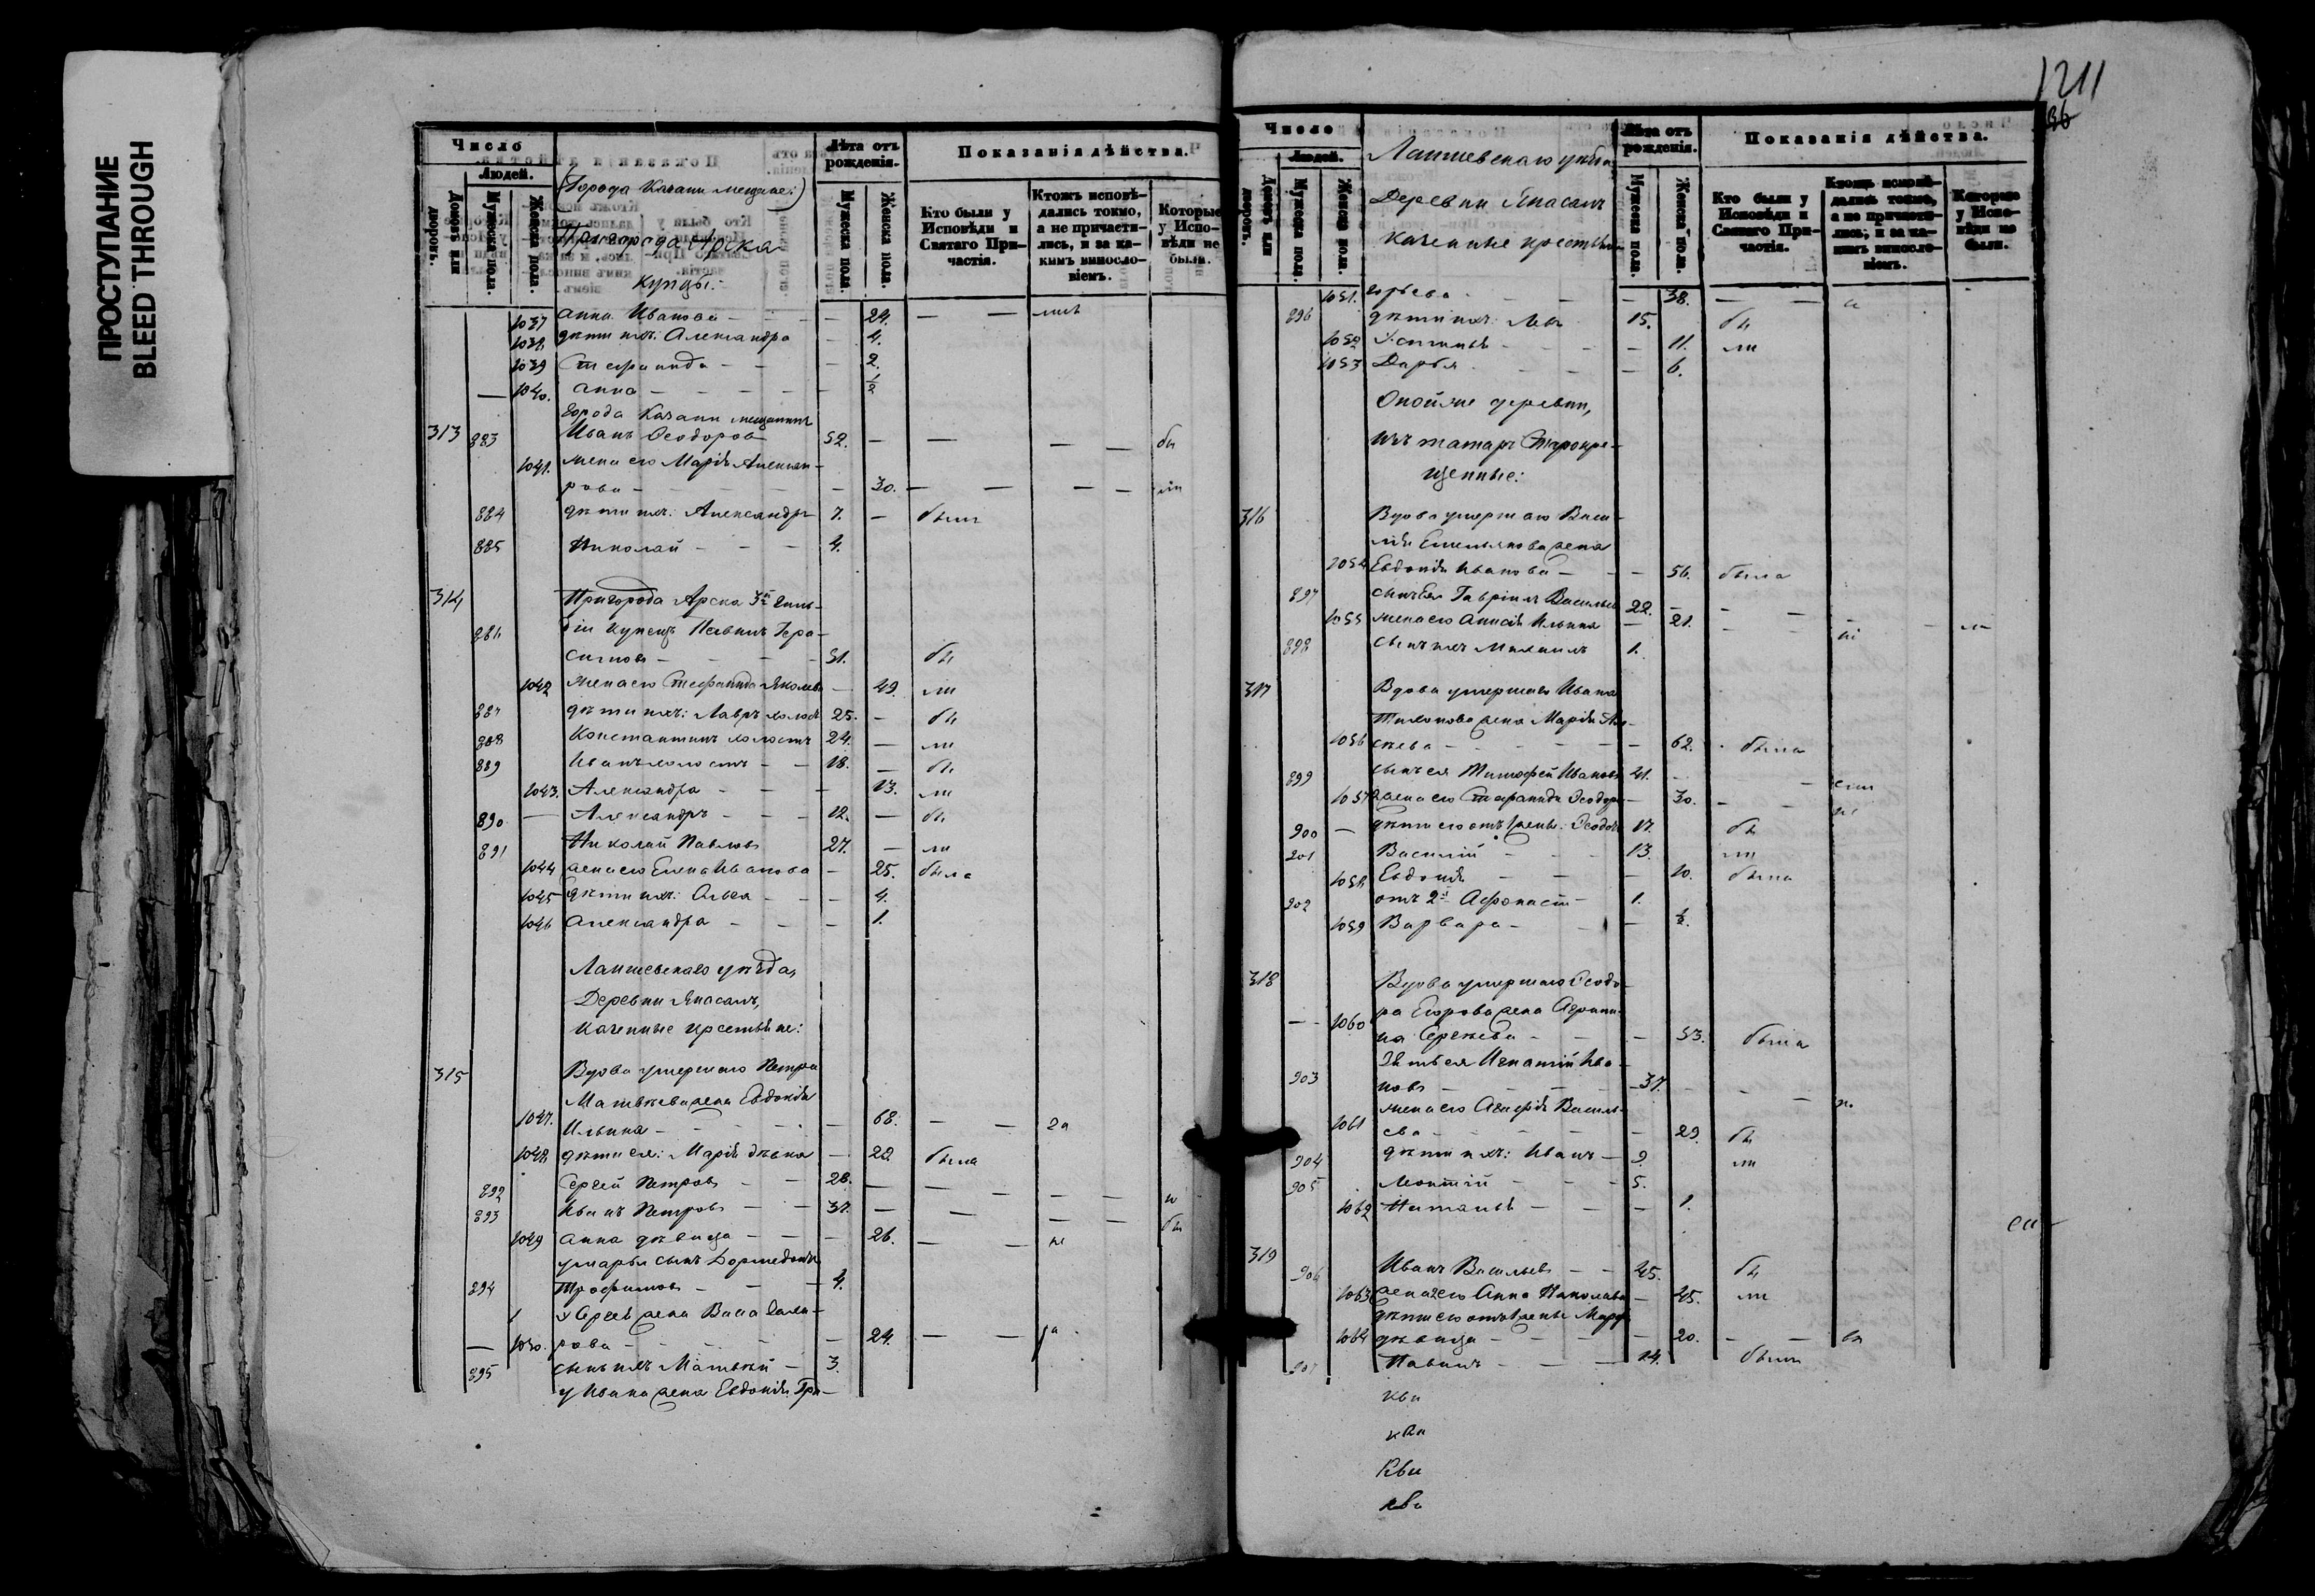 ПРОСТУПАНИЕ
BLEED THROUGH
Число
Людей.
Домовъ или дворовъ.
Мужеска пола.
Женска пола.
(Города Казани мещане:)
Пригорода Арска
Купцы:
Лѣта отъ рожденія.
Мужеска пола.
Женска пола.
Показанія дѣйства.
Кто были у Исповѣди и Святаго Причастія.
Ктожъ исповѣдались токмо, а не причастились, и за какимъ винословіемъ.
Которые у Исповѣди не были.
1037 Анна Иванова — — 24. — —
1038 дѣти ихъ: Александра — 4.
1039 Стефанида — — — 2.
— 1040. Анна — — — — 1/2
Города Казани мещанинъ
313 883 Иванъ Ѳеодоровъ 52. — — — бы
1041. жена его Марія Алексан-
рова — — 30. — — — — ли
884 дѣти ихъ: Александръ 7. — были
885 Николай — — — 4.
314 Пригорода Арска 3й Гиль-
886 діи Купецъ Павелъ Гера-
симовъ — — — 51. бы
1042 жена его Стефанида Яковлева — 49. ли
887 дѣти ихъ: Лавръ холостъ 25. — бы
888 Константинъ холостъ 24. — ли
889 Иванъ холостъ — — 18. — бы
1043. Александра — — — 13. ли
890 — Александръ — — — 12. — бы
891 Николай Павловъ 27. — ли
1044 жена его Елена Иванова — 25. была
1045 дѣти ихъ: Ольга — — — 4.
1046 Александра — — — 1.
Лаишевскаго уѣзда,
Деревни Япасалъ,
Казенные крестьяне:
315 Вдова умершаго Петра
Матвѣева жена Евдокія
1047. Ильина — — — — 68. — —
1048 дѣти ея: Марія дѣвка — 22. была
892 Сергей Петровъ — — 28. — — — —
893 Иванъ Петровъ — — 31. — — — — бы
1049 Анна дѣвица — — — 26. — — не
у Марьи сынъ Дормедонтъ
894 Трофимовъ — — — 4.
у Сергея жена Васса
— 1050. рова — — — — 24. — —
895 сынъ ихъ Матвѣй — 3.
у Ивана жена Евдокія Гри-
1211
Число
Людей.
Домовъ или дворовъ.
Мужеска пола.
Женска пола.
Лаишевскаго уѣзда
Деревни Япасалъ
казенные крестьяне
Лѣта отъ рожденія.
Мужеска пола.
Женска пола.
Показанія дѣйства.
Кто были у Исповѣди и Святаго Причастія.
Ктожъ исповѣдались токмо, а не причастились, и за какимъ винословіемъ.
Которые у Исповѣди не были.
1051. горьева — — — — 38. — —
896 дѣти ихъ: Левъ 15. бы
1052 Устинья — — — — 11. ли
1053 Дарья — — — — 6.
Онойже деревни,
Изъ татаръ Старокре-
щенные:
316 Вдова умершаго Васи-
лія Емельянова жена
1054 Евдокія Иванова — — — 56. была
897 сынъ ея Гавріилъ Васильевъ 22. — — —
1055 жена его Анисія Ильина — 21. — — —
898 сынъ ихъ Михаилъ 1.
317 Вдова умершаго Ивана
Тихонова жена Марія Але-
1056 ксѣева — — — — 62. была
899 сынъ ея Тимофей Ивановъ 41. — —
1057 жена его Стефанида Ѳеодорова — 30. — —
900 — дѣти его отъ 1 жены: Ѳеодоръ 17. бы
901 Василій — — — 13. ли
1058 Евдокія — — — 10. была
902 отъ 2й Афонасій — 1.
1059 Варвара — — 1/2.
318 Вдова умершаго Ѳеодо-
— 1060 ра Егорова жена Агрипи-
на Сергѣева — — — 53. была
Зять ея Игнатій Ива-
903 новъ — — — — 31. — —
жена его Агафія Василь-
1061 ева — — — — 29. бы
904 дѣти ихъ: Иванъ — 9. ли
905 Леонтій — — — 5.
1062 Наталья — — — 1.
319
906 Иванъ Васильевъ — — 45. бы
1063 жена его Анна Николаева — 45. ли
дѣти его отъ 1 жены Марѳа
1064 дѣвица — — — — 20. — —
907 Павелъ — — — 14. были